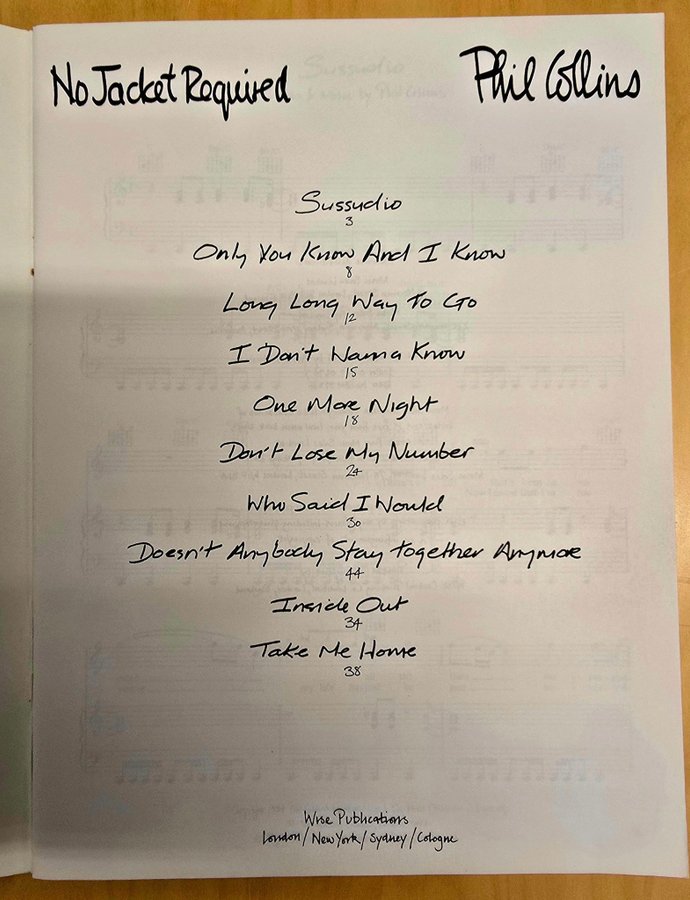 No Jacket Required
Phil Collins
Sussudio
3
Only You Know And I Know
8
Long Long Way To Go
12
I Don't Wanna Know
15
One More Night
18
Don't Lose My Number
24
Who Said I Would
30
Doesn't Anybody Stay together Anymore
44
Inside Out
34
Take Me Home
38
Wise Publications
London/New York/Sydney/Cologne